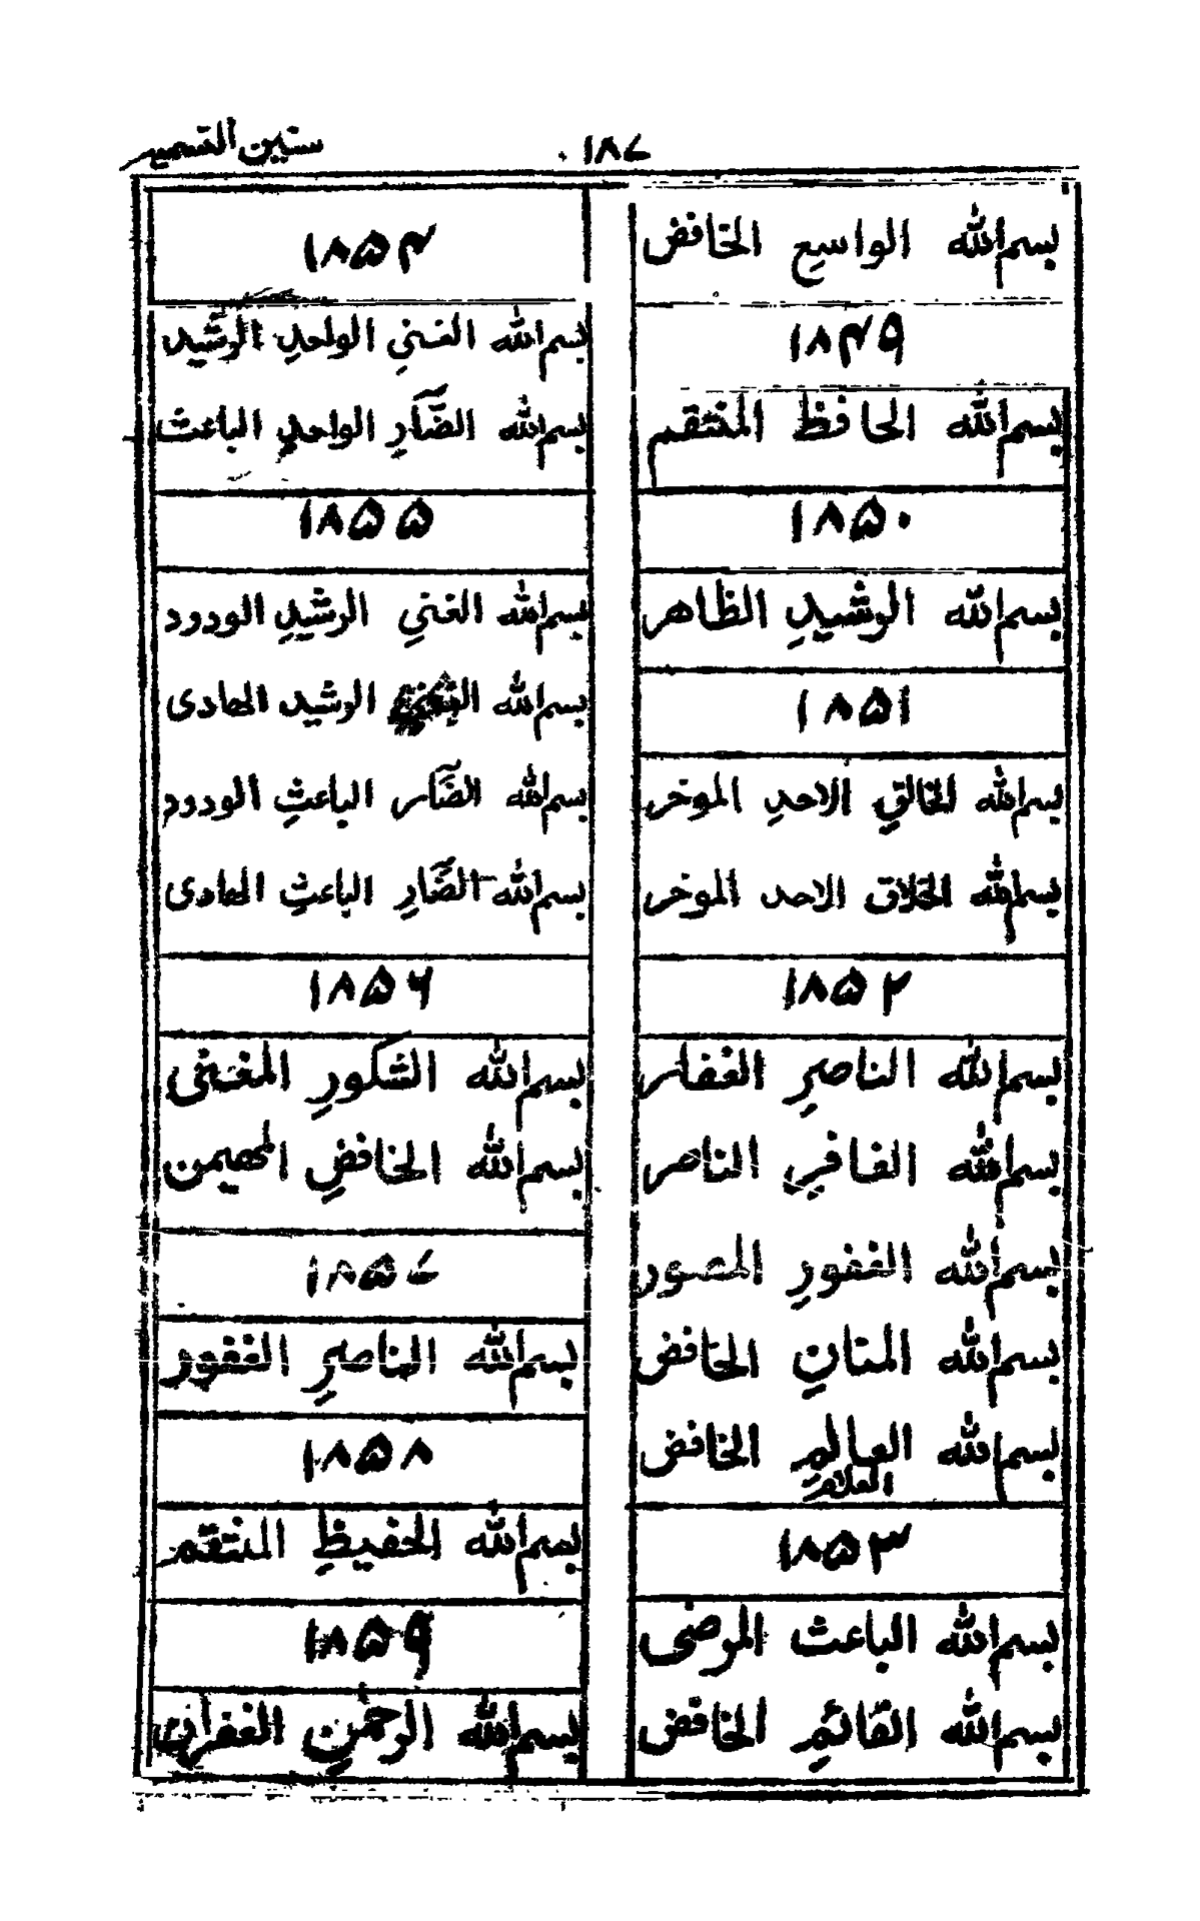 ۱۸۷
سنین التسمیہ
بسم الله الواسع الخافض
۱۸۴۹
بسم الله الحافظ المنتقم
۱۸۵۰
بسم الله الرشيدِ الظاهر
۱۸۵۱
بسم الله الخالقِ الاحدِ الموخر
بسم الله الخلاق الاحد الموخر
۱۸۵۲
بسم الله الناصرِ الغفار
بسم الله الغافرِ الناصر
بسم الله الغفورِ المصور
بسم الله المنانِ الخافض
بسم الله العالمِ الخافض
العلام
۱۸۵۳
بسم الله الباعث المرضى
بسم الله القائمِ الخافض
۱۸۵۴
بسم الله الغنيِ الواحدِ الرشيد
بسم الله الضَّآرِ الواحدِ الباعث
۱۸۵۵
بسم الله الغنيِ الرشيدِ الودود
بسم الله الرشيد الهادى
بسم الله الضَّآر الباعثِ الودود
بسم الله الضَّآرِ الباعثِ الهادى
۱۸۵۶
بسم الله الشكورِ المغنى
بسم الله الخافضِ المهيمن
۱۸۵۷
بسم الله الناصرِ الغفور
۱۸۵۸
بسم الله الحفيظِ المنتقم
۱۸۵۹
بسم الله الرحمٰنِ الغفران